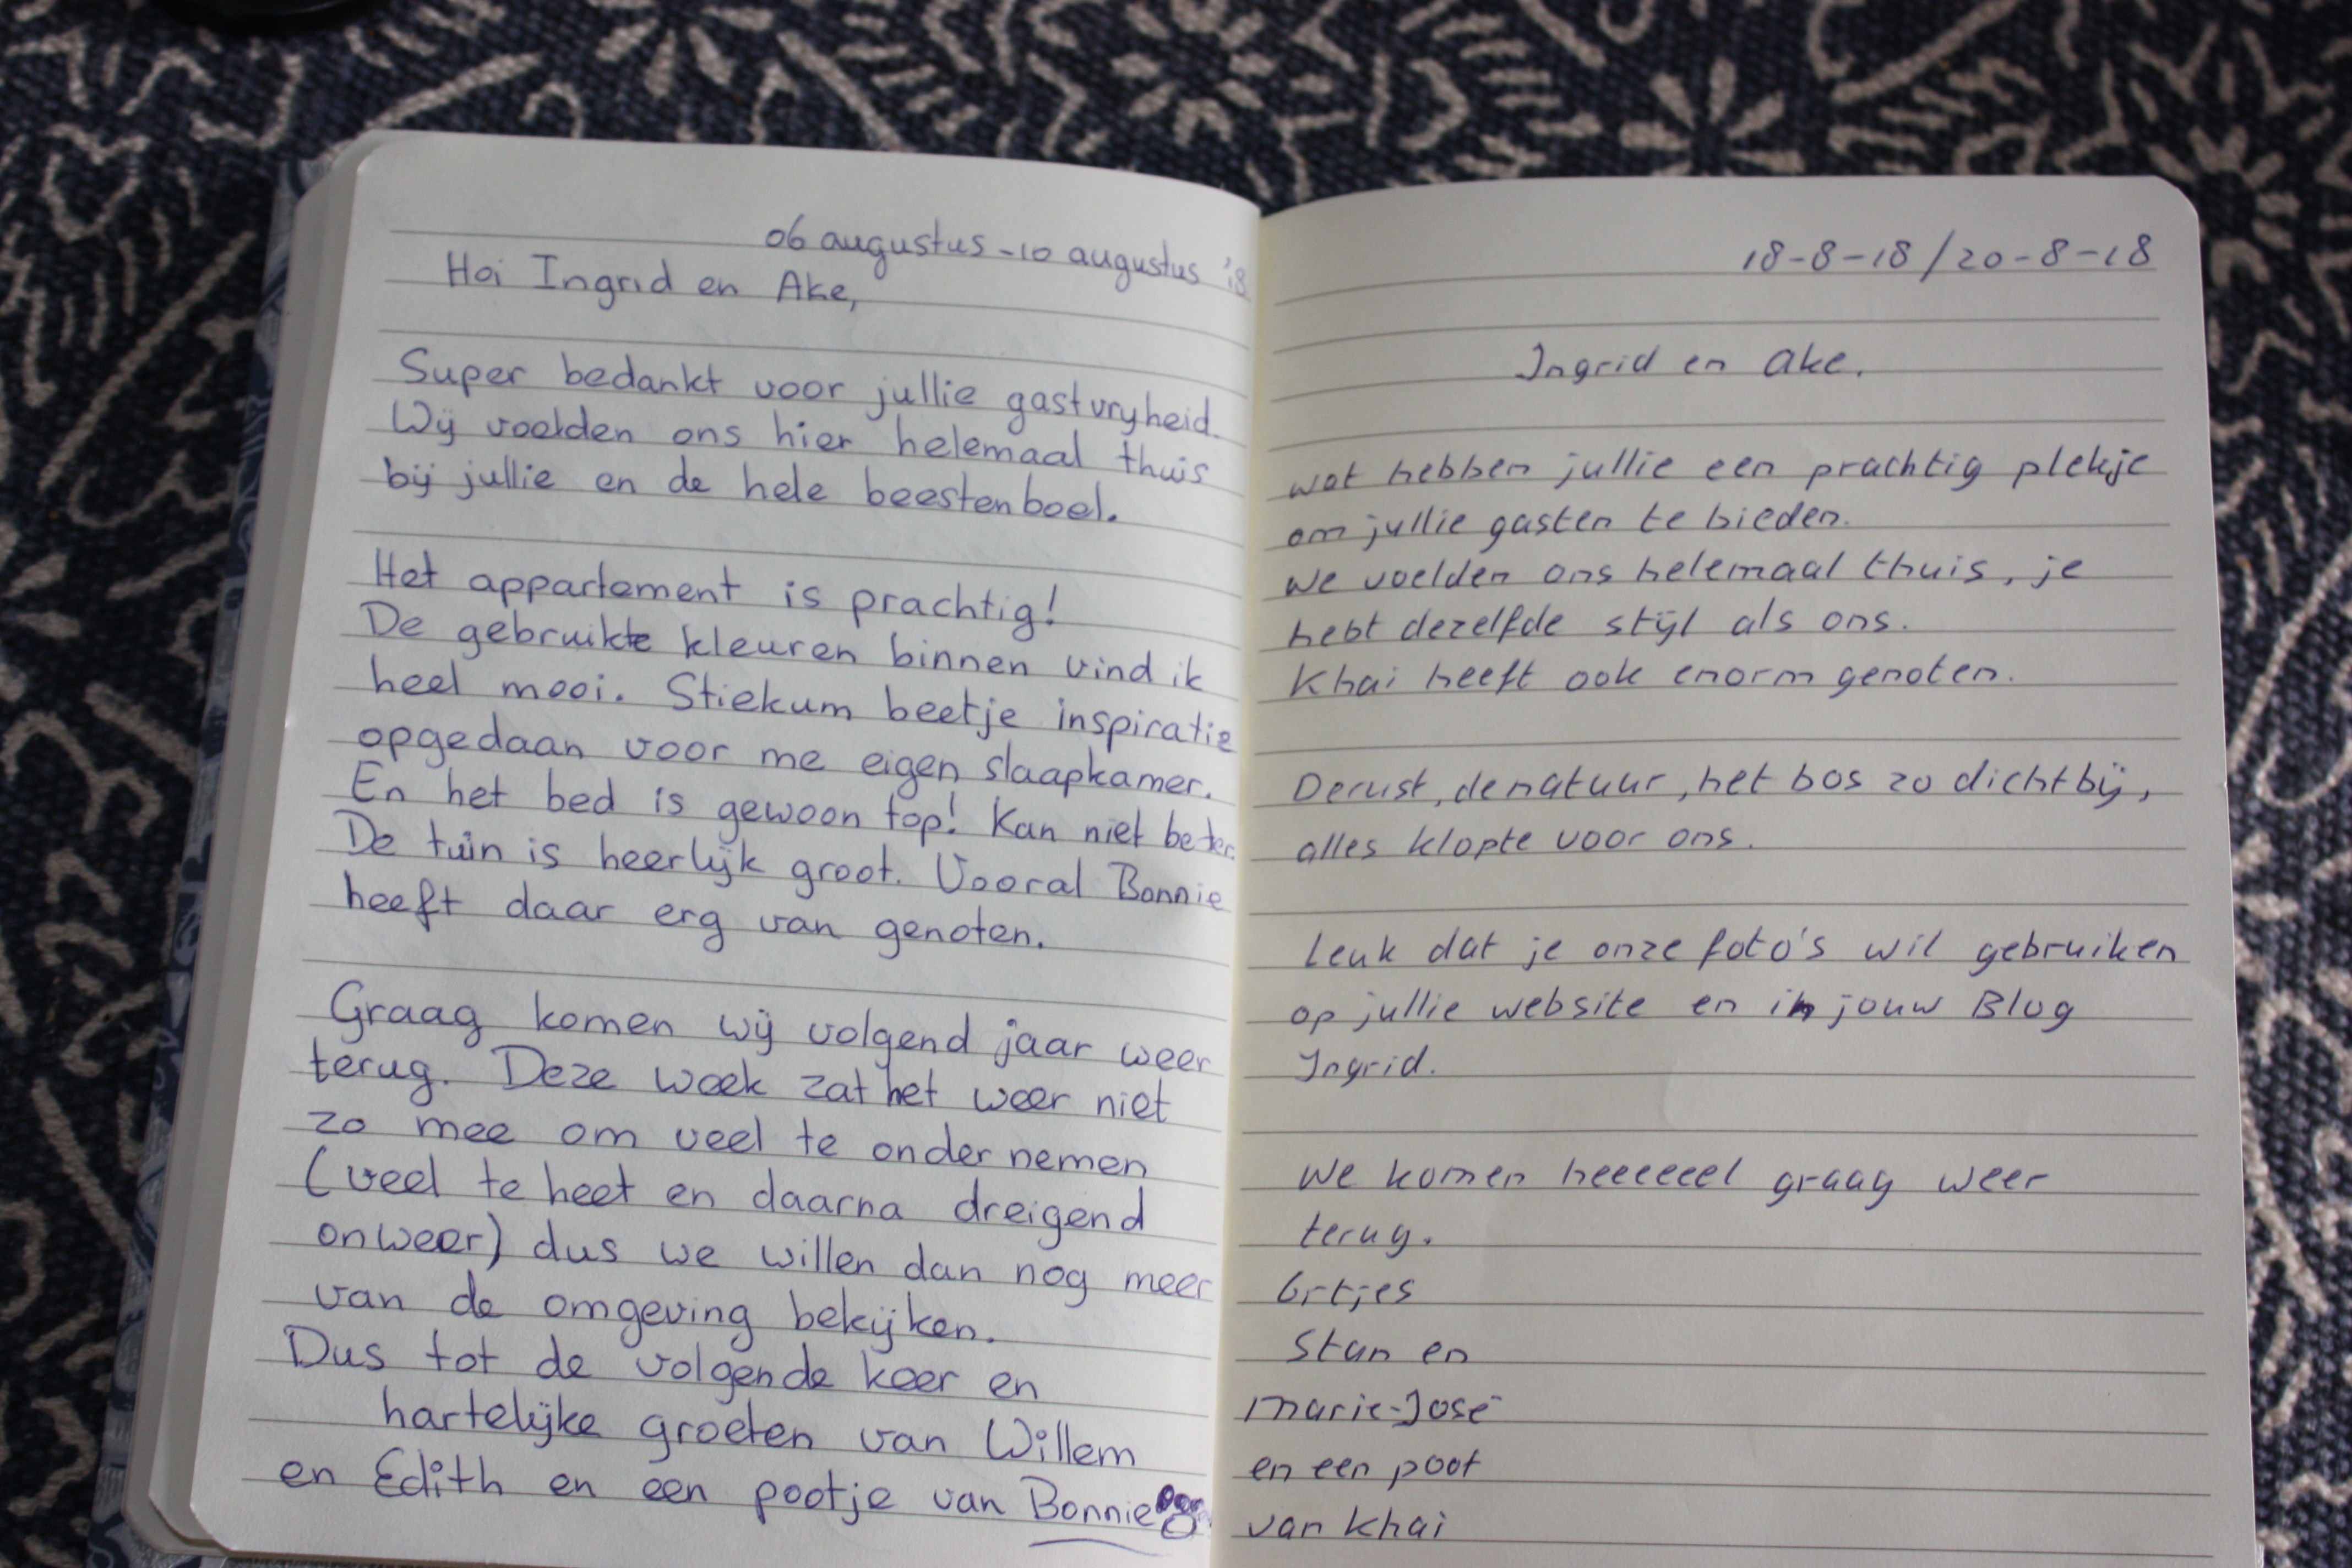 06 augustus - 10 augustus '18
Hoi Ingrid en Ake,
Super bedankt voor jullie gastvryheid.
Wij voelden ons hier helemaal thuis
bij jullie en de hele beestenboel.
Het appartement is prachtig!
De gebruikte kleuren binnen vind ik
heel mooi. Stiekum beetje inspiratie
opgedaan voor me eigen slaapkamer.
En het bed is gewoon top! Kan niet beter.
De tuin is heerlijk groot. Vooral Bonnie
heeft daar erg van genoten.
Graag komen wij volgend jaar weer
terug. Deze week zat het weer niet
zo mee om veel te ondernemen
(veel te heet en daarna dreigend
onweer) dus we willen dan nog meer
van de omgeving bekijken.
Dus tot de volgende keer en
hartelijke groeten van Willem
en Edith en een pootje van Bonnie
18-8-18 / 20-8-18
Ingrid en Ake.
wat hebben jullie een prachtig plekje
om jullie gasten te bieden.
we voelden ons helemaal thuis, je
hebt dezelfde stijl als ons.
Khai heeft ook enorm genoten.
De rust, de natuur, het bos zo dichtbij,
alles klopte voor ons.
Leuk dat je onze foto's wil gebruiken
op jullie website en in jouw Blog
Ingrid.
We komen heeeeeel graag weer
terug.
Grtjes
Stan en
Marie-José
en een poot
van Khai